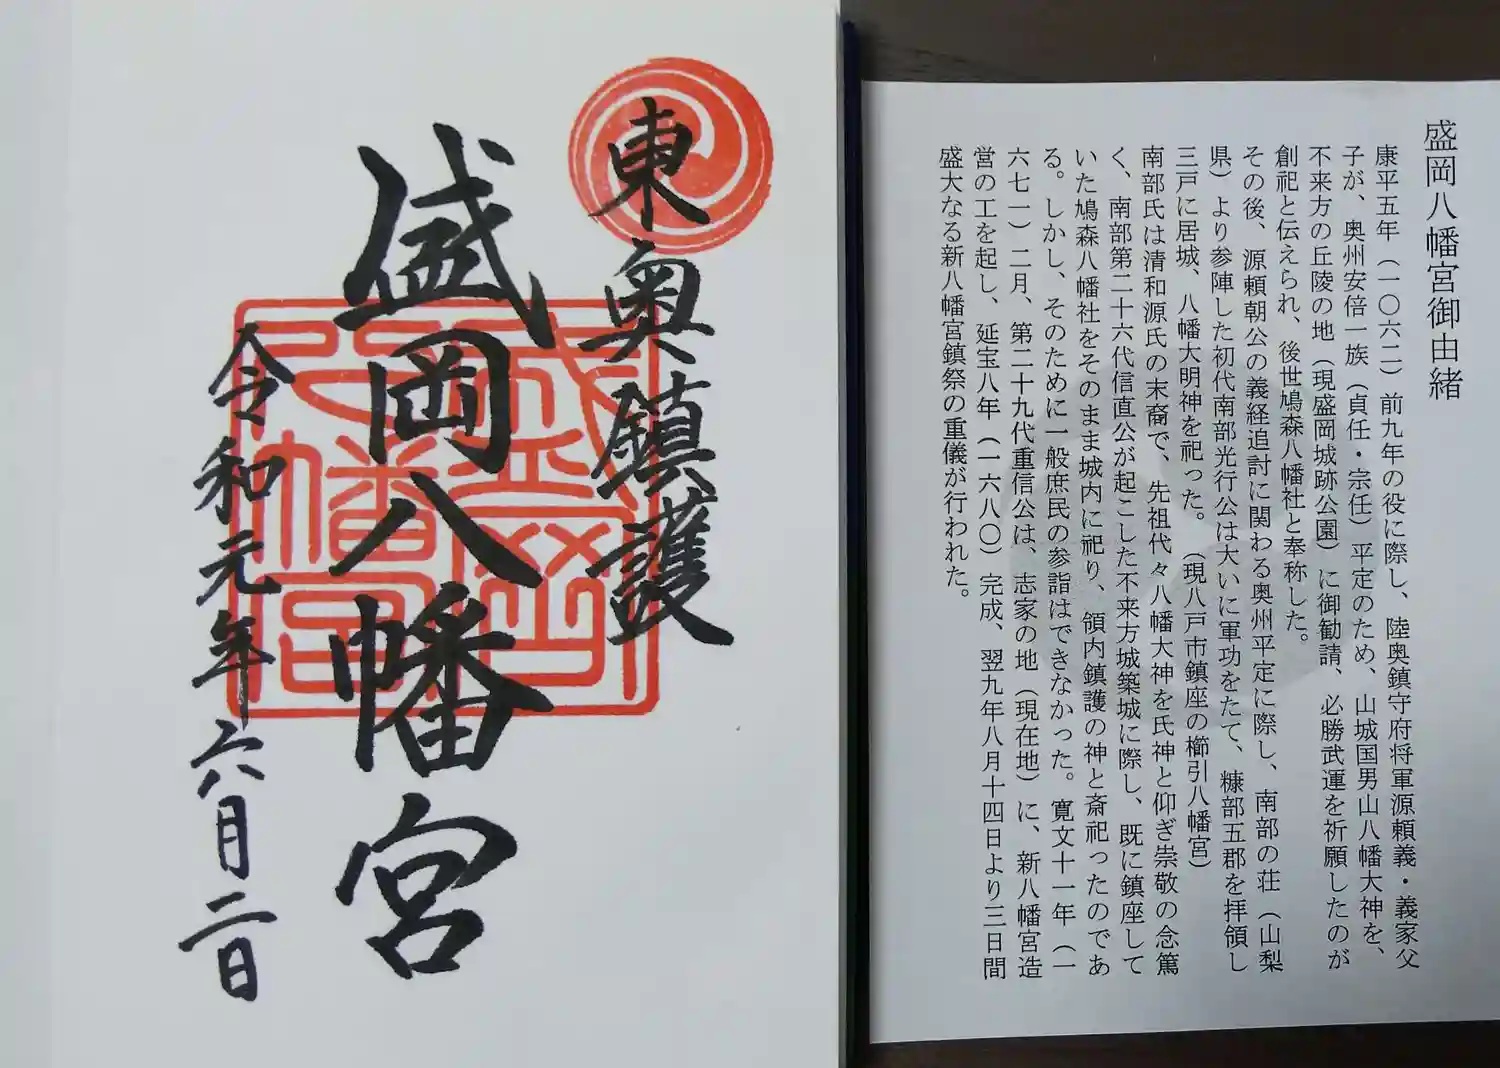 東奥鎮護
盛岡八幡宮
令和元年六月二日
盛岡八幡宮
盛岡八幡宮御由緒
康平五年(一〇六二)前九年の役に際し、陸奥鎮守府将軍源頼義・義家父
子が、奥州安倍一族(貞任・宗任)平定のため、山城国男山八幡大神を、
不来方の丘陵の地(現盛岡城跡公園)に御勧請、必勝武運を祈願したのが
創祀と伝えられ、後世鳩森八幡社と奉称した。
その後、源頼朝公の義経追討に関わる奥州平定に際し、南部の荘(山梨
県)より参陣した初代南部光行公は大いに軍功をたて、糠部五郡を拝領し
三戸に居城、八幡大明神を祀った。(現八戸市鎮座の櫛引八幡宮)
南部氏は清和源氏の末裔で、先祖代々八幡大神を氏神と仰ぎ崇敬の念篤
く、南部第二十六代信直公が起こした不来方城築城に際し、既に鎮座して
いた鳩森八幡社をそのまま城内に祀り、領内鎮護の神と斎祀ったのであ
る。しかし、そのために一般庶民の参詣はできなかった。寛文十一年(一
六七一)二月、第二十九代重信公は、志家の地(現在地)に、新八幡宮造
営の工を起し、延宝八年(一六八〇)完成、翌九年八月十四日より三日間
盛大なる新八幡宮鎮祭の重儀が行われた。